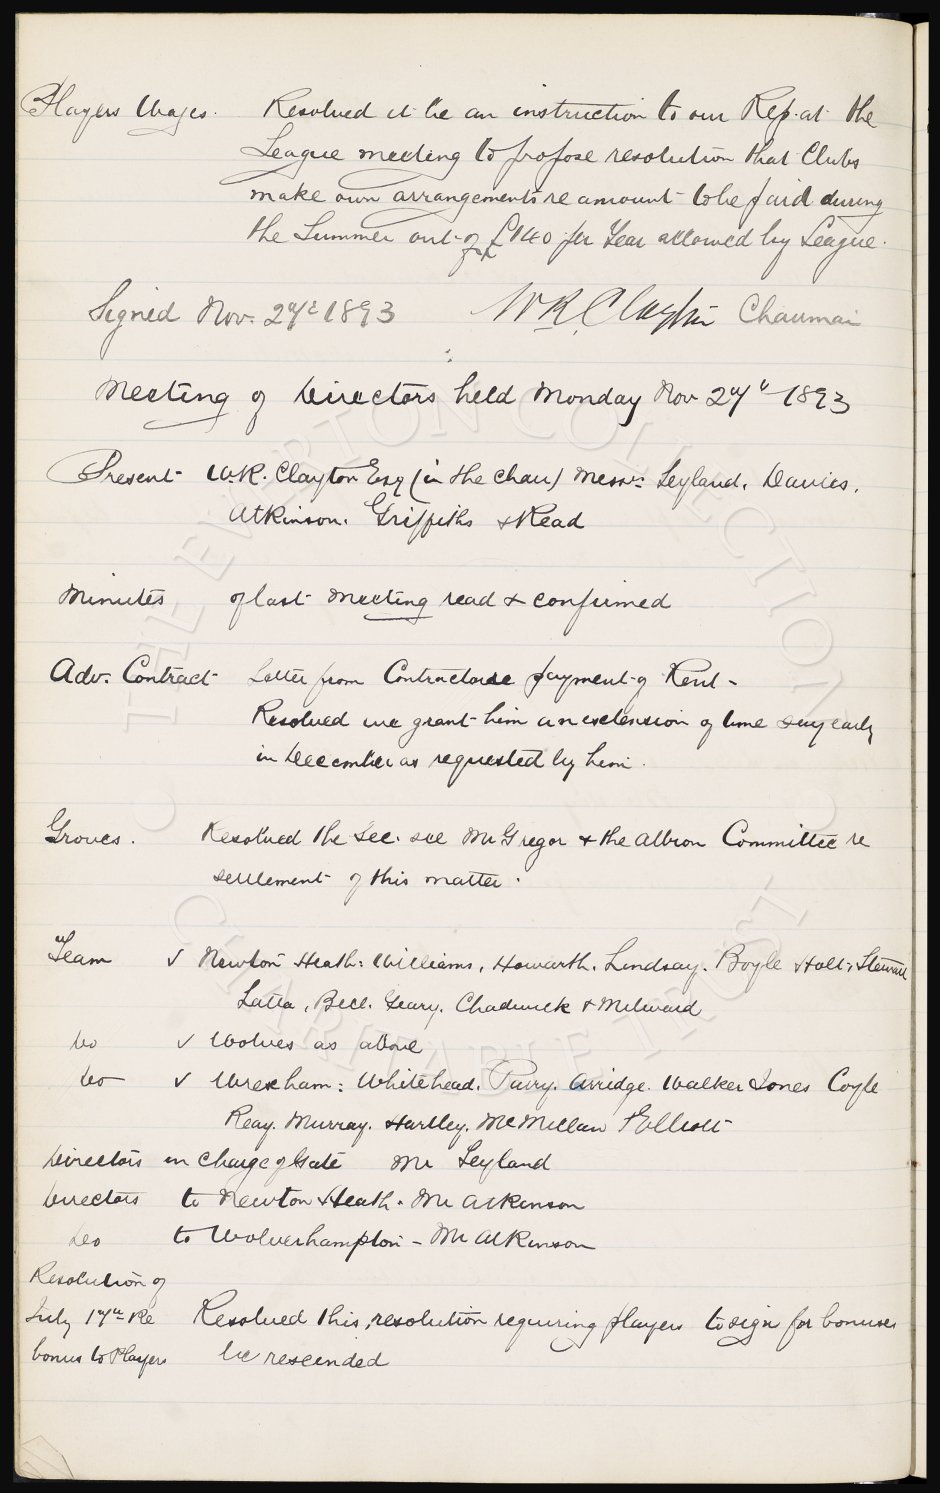 Players Wages. Resolved it be an instruction to our Rep. at the
League meeting to propose resolution that Clubs
make own arrangements re amount to be paid during
the Summer out of £140 per Year allowed by League.
Signed Nov. 27th 1893 W R Clayton Chairman
Meeting of Directors held Monday Nov 27th 1893
Present W.R. Clayton Esq (in the chair) Messrs Leyland, Davies,
Atkinson, Griffiths & Read
Minutes of last meeting read & confirmed
Adv. Contract Letter from Contractor re payment of Rent -
Resolved we grant him an extension of time say early
in December as requested by him.
Groves. Resolved the Sec. see McGregor & the Albion Committee re
settlement of this matter.
Team v Newton Heath: Williams, Howarth, Lindsay. Boyle Holt, Stewart
Latta, Bell. Geary. Chadwick & Milward
Do v Wolves as above
Do v Wrexham: Whitehead. Parry. Arridge. Walker Jones Coyle
Reay. Murray. Hartley. McMillan & Elliott
Directors in charge of Gate Mr Leyland
Directors to Newton Heath. Mr Atkinson
Do to Wolverhampton - Mr Atkinson
Resolution of
July 17th Re Resolved this resolution requiring players to sign for bonuses
bonus to Players be rescinded
THE EVERTON COLLECTION
CHARITABLE TRUST